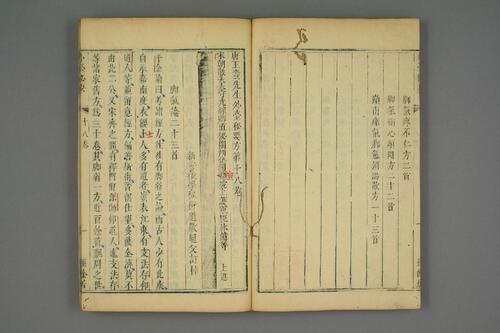 脚氣痹不仁方二首
脚氣衝心煩悶方二十二首
嶺南瘴氣脚氣酒湯散方一十三首
唐王燾先生外臺秘要方第十八卷
宋朝散大夫守光祿卿直秘閣判登聞簡院上護軍臣林億等 上進
新安後學程衍道敬通父訂梓
脚氣論二十三首
千金論曰考諸經方往往有脚弱之論而古人少有此疾
自永嘉南度衣纓士人多有遭者嶺表江東有支法存仰
道人等並留意經方偏善斯術晉朝仕望多獲全濟莫不
由此二公又宋齊之間有釋門深師師仰道人述支法存
等諸家舊方為三十卷其脚弱一方近百餘首魏周之代